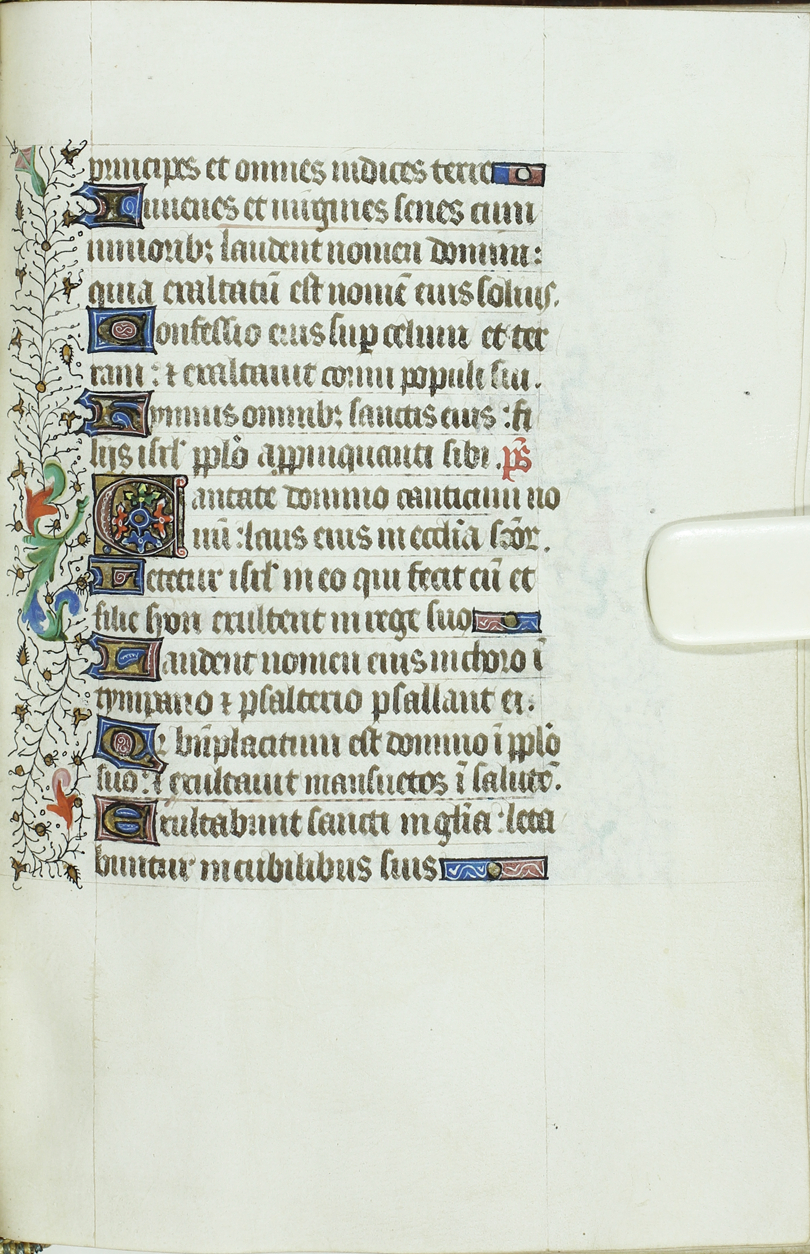 principes et omnes iudices terre
Iuuenes et uirgines senes cum
iunioribꝫ laudent nomen domini:
quia exaltatū est nomē eius solius.
Confessio eius suꝑ celum et ter
ram: ⁊ exaltauit cornu populi sui.
Hymnus omnibꝫ sanctis eius: fi
lijs isrl' pplō appinquanti sibi. ps̄
Cantate domino canticum no
uū: laus eius in eccliā scōr.
Letetur isrl' in eo qui fecit eū et
filie syon exultent in rege suo
Laudent nomen eius in choro ī
tympano ⁊ psalterio psallant ei.
Qr bn̄placitum est domino ī pplō
suo: ⁊ exultauit mansuetos ī salutē.
Exultabunt sancti in glīa: leta
buntur in cubilibus suis